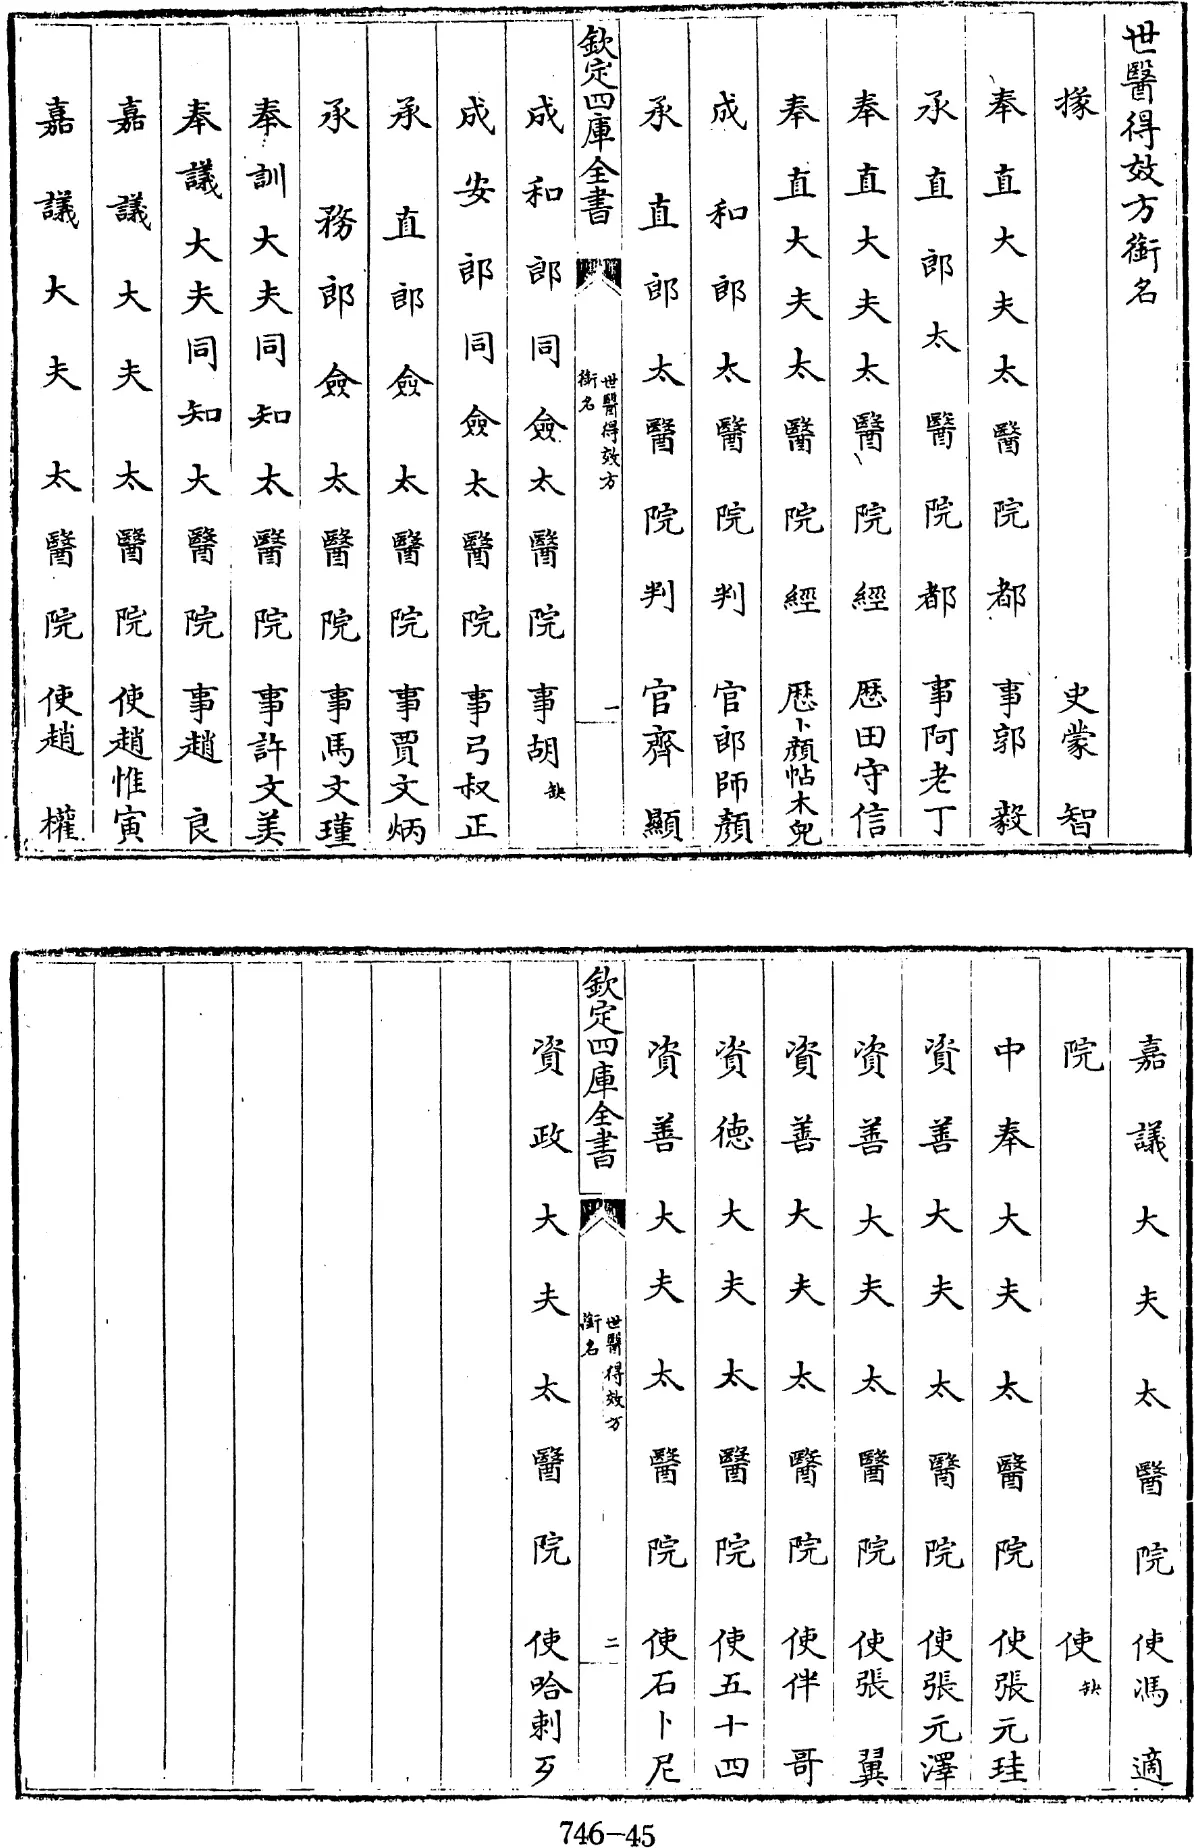 世醫得效方銜名
掾史蒙智
奉直大夫太醫院都事郭毅
承直郎太醫院都事阿老丁
奉直大夫太醫院經歷田守信
奉直大夫太醫院經歷卜顏帖木兒
成和郎太醫院判官郎師顏
承直郎太醫院判官齊顯
欽定四庫全書
世醫得效方
銜名
一
成和郎同僉太醫院事胡缺
成安郎同僉太醫院事弓叔正
承直郎僉太醫院事賈文炳
承務郎僉太醫院事馬文瑾
奉訓大夫同知太醫院事許文美
奉議大夫同知大醫院事趙良
嘉議大夫太醫院使趙惟寅
嘉議大夫太醫院使趙權
嘉議大夫太醫院使馮適
院使缺
中奉大夫太醫院使張元珪
資善大夫太醫院使張元澤
資善大夫太醫院使張翼
資善大夫太醫院使伴哥
資德大夫太醫院使五十四
資善大夫太醫院使石卜尼
欽定四庫全書
世醫得效方
銜名
二
資政大夫太醫院使哈剌歹
746-45